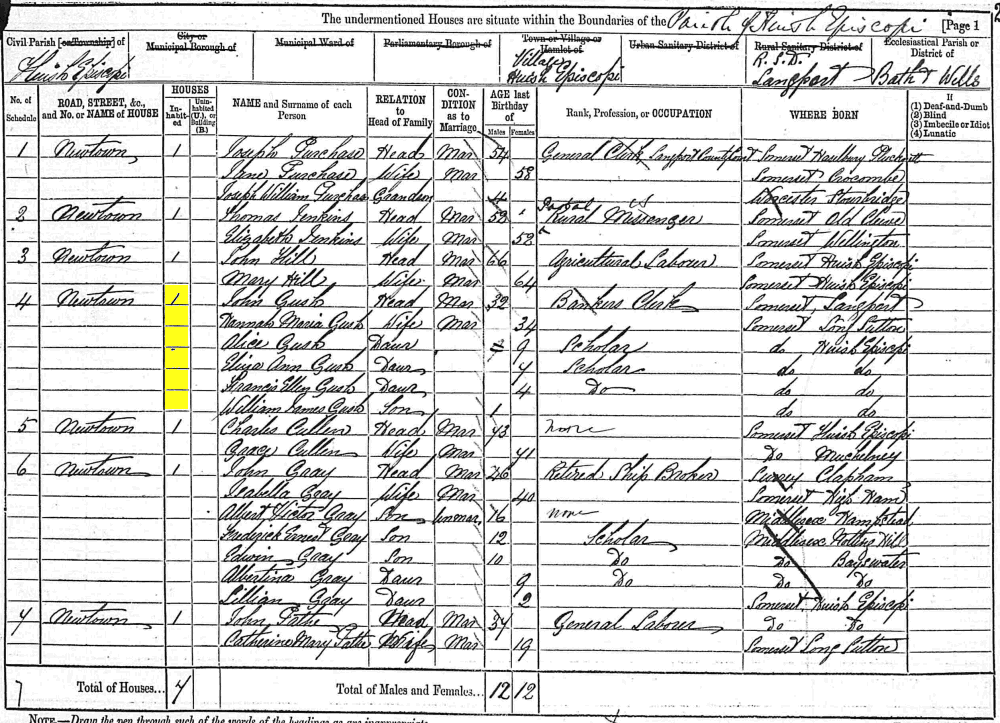 The undermentioned Houses are situate within the Boundaries of the Parish of Huish Episcopi [Page 1
Civil Parish [or Township] of
Huish Episcopi
City or Municipal Borough of
Municipal Ward of
Parliamentary Borough of
Town or Village or Hamlet of
Village
Huish Episcopi
Urban Sanitary District of
Rural Sanitary District of
R. S. D.
Langport
Ecclesiastical Parish or District of
Bath & Wells
No. of Schedule
ROAD, STREET, &c., and No. or NAME of HOUSE
HOUSES
Inhabited
Uninhabited (U.), or Building (B.)
NAME and Surname of each Person
RELATION to Head of Family
CONDITION as to Marriage
AGE last Birthday of
Males Females
Rank, Profession, or OCCUPATION
WHERE BORN
If
(1) Deaf-and-Dumb
(2) Blind
(3) Imbecile or Idiot
(4) Lunatic
1 Newtown 1 Joseph Purchase Head Mar 54 General Clerk Langport Somerset
Jane Purchase Wife Mar 58 Somerset Crocombe
Joseph William Grandson 4 Worcester Stourbridge
2 Newtown 1 Thomas Jenkins Head Mar 52 Rural Messenger Somerset Old Cleeve
Elizabeth Jenkins Wife Mar 52 Somerset Wellington
3 Newtown 1 John Hill Head Mar 66 Agricultural Labourer Somerset Huish Episcopi
Mary Hill Wife Mar 64 Somerset Huish Episcopi
4 Newtown 1 John Gush Head Mar 32 Bankers Clerk Somerset, Langport
Hannah Maria Gush Wife Mar 34 Somerset Long Sutton
Alice Gush Daur 9 Scholar do Huish Episcopi
Eliza Ann Gush Daur 7 Scholar do do
Francis Ellen Gush Daur 4 Do do do
William James Gush Son 1 do do
5 Newtown 1 Charles Cullen Head Mar 43 none Somerset Huish Episcopi
Grace Cullen Wife Mar 41 Do Muchelney
6 Newtown 1 John Gray Head Mar 46 Retired Ship Broker Surrey Clapham
Isabella Gray Wife Mar 40 Somerset High Ham
Albert Victor Gray Son Unmar 16 none Middlesex Hampstead
Frederick Ernest Gray Son 12 Scholar Middlesex Notting Hill
Edwin Gray Son 10 Do Do Bayswater
Albertina Gray Daur 9 Do Do Do
Lillian Gray Daur 2 Somerset Huish Episcopi
7 Newtown 1 John Head Mar 34 General Labourer Do Do
Catherine Mary Wife Mar 19 Somerset Long Sutton
7 Total of Houses... 7 Total of Males and Females... 12 12
NOTE.—Draw the pen through such of the words of the headings as are inappropriate.